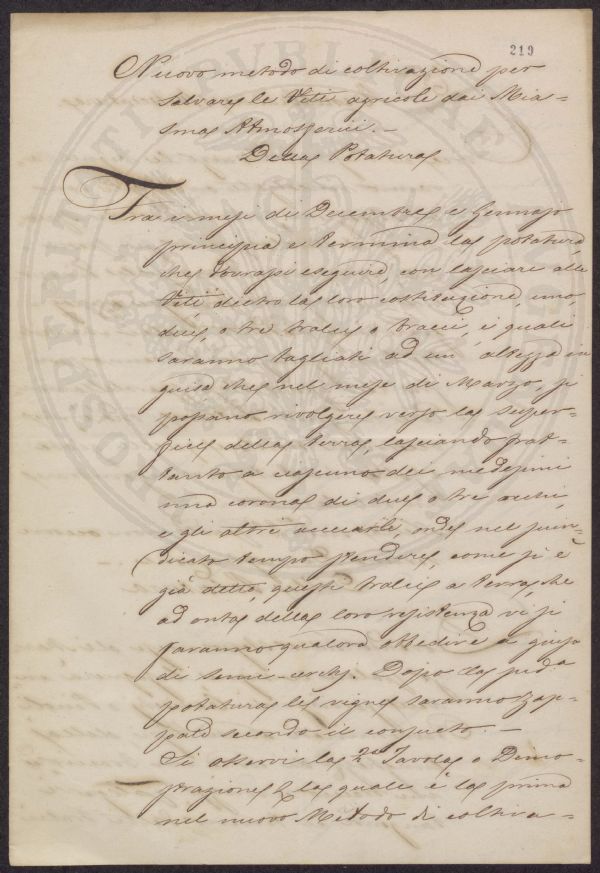 219
Nuovo metodo di coltivazione per
salvare le Viti agricole dai Mia-
smas Atmosferici.-
Della Potatura
Tra i mesi di Decembre e Gennajo
principia e termina la potatura,
che dovrassi eseguire, con lasciare alle
Viti, dietro la loro costituzione uno
due, o tre tralci o bracci, i quali
saranno tagliati ad un' altezza in
guisa che nel mese di Marzo, si
possano rivolgere verso la super-
ficie della terra, lasciando frat-
tanto a ciascuno dei medesimi
una corona di due o tre occhi,
e gli altri acciecarli, onde nel su in-
dicato tempo stendere, come si è
già detto, questi tralci a terra, che
ad onta della loro resistenza vi si
faranno qualora obbedire a guisa
di semi-cerchj. Dopo la sud.a
potatura le vigne saranno zap-
pate secondo il consueto.-
Si osservi la 2da Tavola o Dimo-
strazione la quale è la prima
nel nuovo Metodo di coltiva-